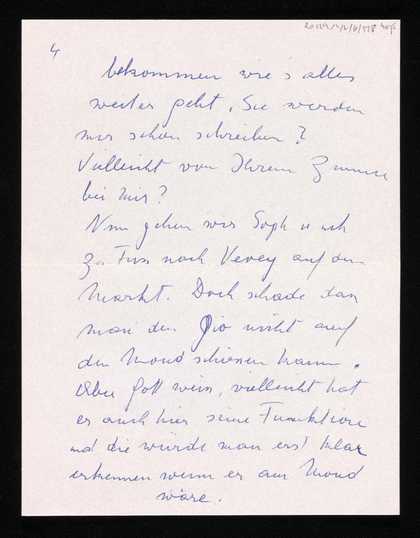 4
bekommen wie's alles
weiter geht, Sie werden
mir schon schreiben?
Vielleicht von Ihrem Zimmer
bei mir?
Nun gehen wir Soph u ich
zu Fuss nach Vevey auf den
Markt. Doch schade dass
man den Gio nicht auf
den Mond schiessen kann.
Aber Gott weiss, vielleicht hat
er auch hier seine Funktion
und die würde man erst klar
erkennen wenn er am Mond
wäre.